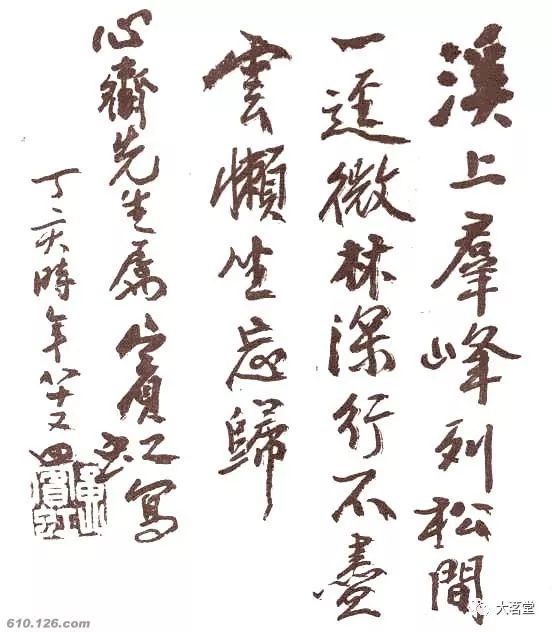 溪上羣峰列松間
一逕微林深行不盡
雲懶坐忘歸
心齋先生属賓虹寫
丁亥時年八十又四
610.126.com
大茗堂